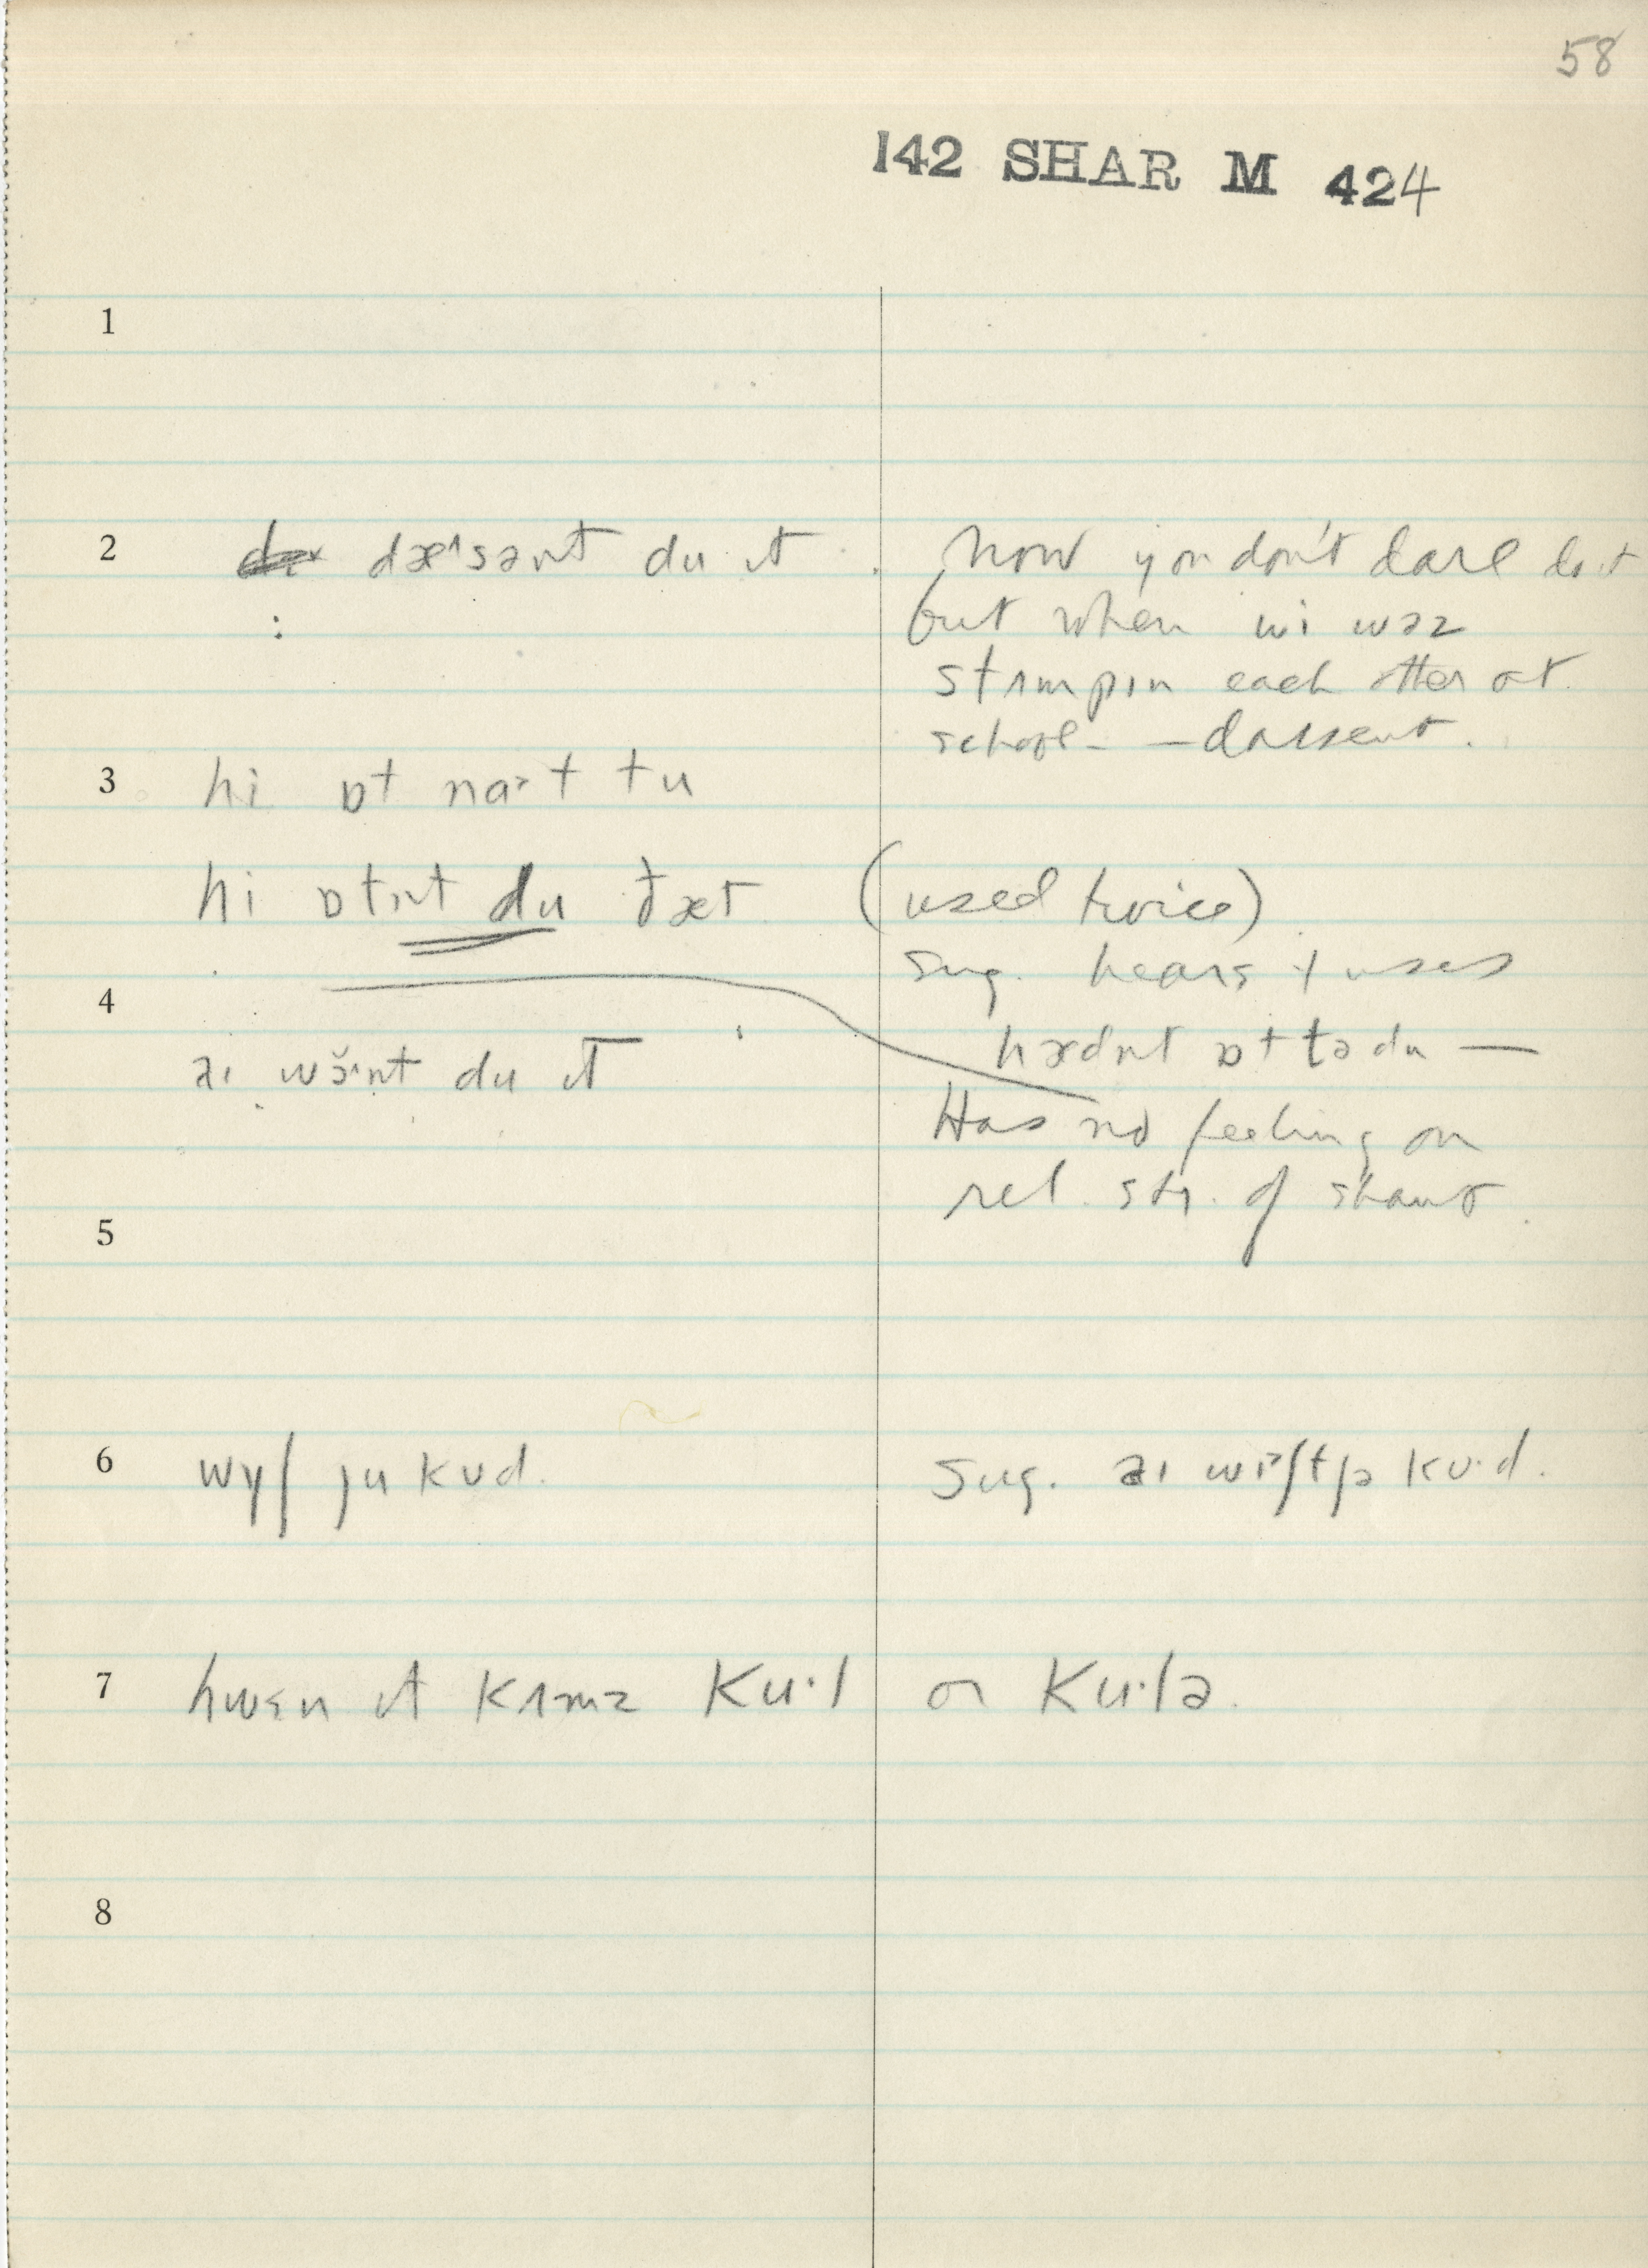 58
142 SHAR M 424
1
2 dæ^sənt du ɪt
now you don't dare do it
but when wi wəz
stʌmpɪn each other at
school - — dassent.
3 hi ɒt naːt tu
hi ɒtnt du ðæt (used twice)
sug. hears + uses
4 hædnt ɒt tə du —
aɪ wɜ̆nt du ɪt
Has no feeling on
rel. str. of shant
5
6 wɪʃ ju kʊd.
sug. aɪ wɪʃt jə kʊ·d.
7 hwɛn ɪt kʌmz ku·l or ku·lə.
8